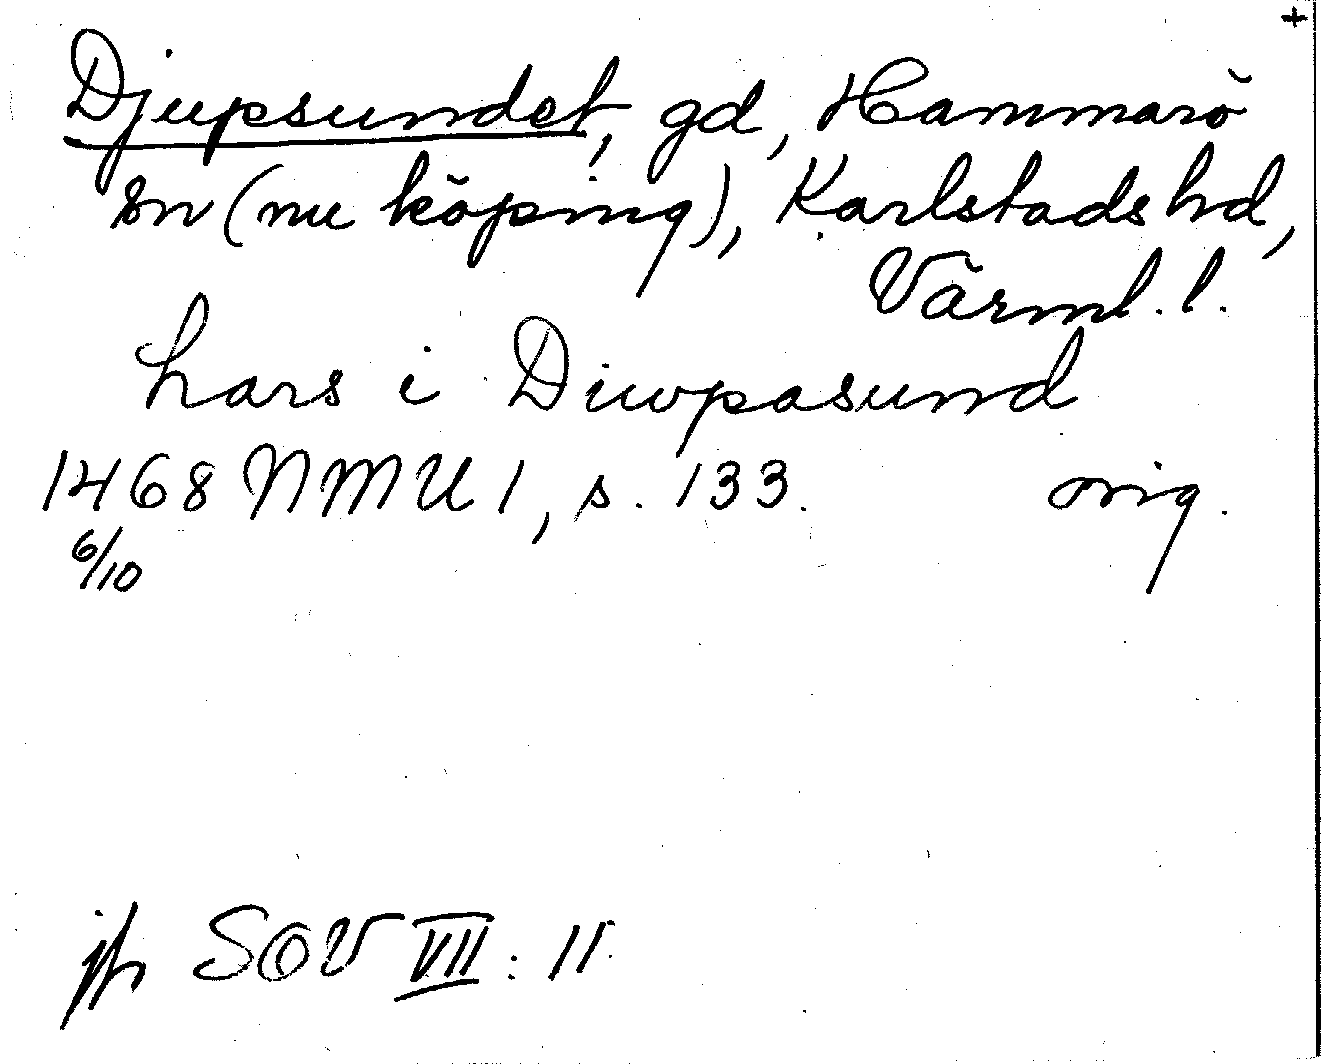 +
Djupsundet, gd, Hammarö
sn (nu köping), Karlstads hd,
Värml. l.
Lars i Diwpasund
1468 NMU 1, s. 133. orig.
6/10
jfr SOV VII: 11